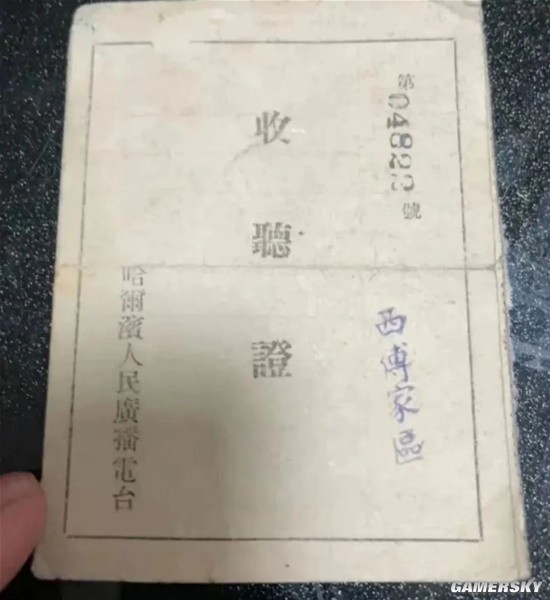 第04822號
西傅家區
收聽證
哈爾濱人民廣播電台
GAMERSKY